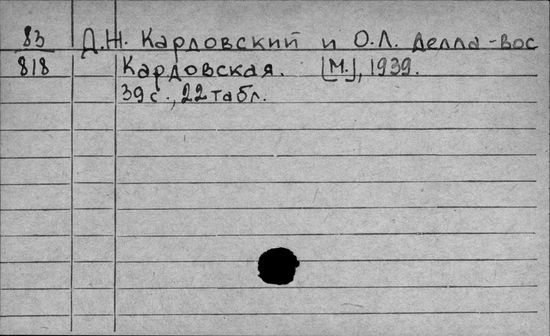 83 Д.Н. Кардовский и О.Л. Делла-Вос
818 Кардовская. [М.], 1939.
39 с., 22 табл.